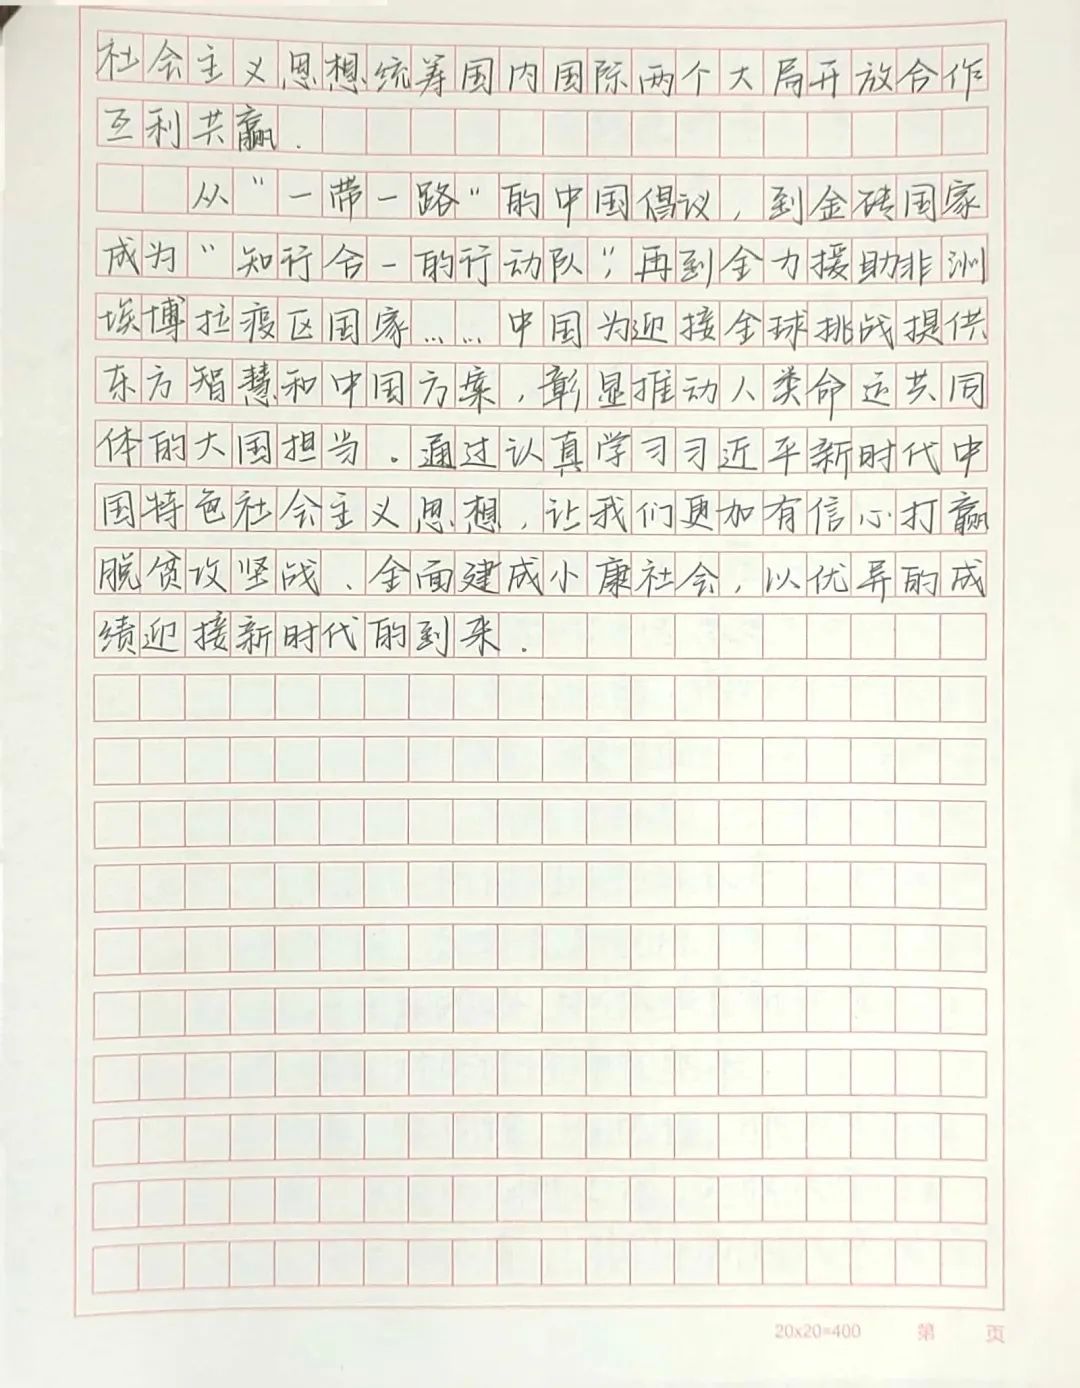 社会主义思想统筹国内国际两个大局开放合作
互利共赢.
从"一带一路"的中国倡议,到金砖国家
成为"知行合一的行动队",再到全力援助非洲
埃博拉疫区国家……中国为迎接全球挑战提供
东方智慧和中国方案,彰显推动人类命运共同
体的大国担当.通过认真学习习近平新时代中
国特色社会主义思想,让我们更加有信心打赢
脱贫攻坚战、全面建成小康社会,以优异的成
绩迎接新时代的到来.
20x20=400 第 页